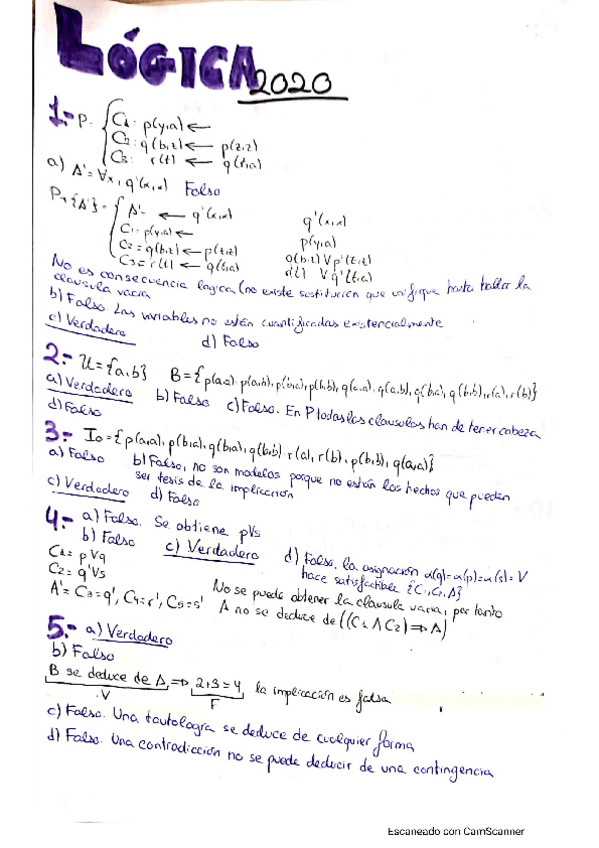 LÓGICA 2020
1.- P. { C1: p(y,a) ←
C2: q(b,z) ← p(z,z)
C3: r(t) ← q(t,a)
a) A'= ∀x, q'(x,x) Falso
P ∪ {A'} = { A'= ← q'(x,x) q'(x,x)
C1= p(y,a) ← p(y,a)
C2 = q(b,z) ← p(z,z) q(b,z) V p'(z,z)
C3 = r(t) ← q(t,a) r(t) V q'(t,a)
No es consecuencia logica (no existe sustitución que unifique hasta hallar la
clausula vacia
b) Falso. Las variables no están cuantificadas existencialmente
c) Verdadero d) Falso
2.- U={a,b} B={p(a,a), p(a,b), p(b,a), p(b,b), q(a,a), q(a,b), q(b,a), q(b,b), r(a), r(b)}
a) Verdadero b) Falso c) Falso. En P todas las clausulas han de tener cabeza
d) Falso
3.- I0={p(a,a), p(b,a), q(b,a), q(b,b), r(a), r(b), p(b,b), q(a,a)}
a) Falso b) Falso, no son modelos porque no están los hechos que pueden
ser tesis de la implicación
c) Verdadero d) Falso
4.- a) Falso. Se obtiene pVs
b) Falso c) Verdadero d) Falso, la asignación α(q)=α(p)=α(s)=V
hace satisfactible {C1, C2, A}
C1= pVq
C2= q'Vs
A'= C3=q', C4=r', C5=s' No se puede obtener la clausula vacia, por tanto
A no se deduce de ((C1 ∧ C2) ⇒ A)
5.- a) Verdadero
b) Falso
B se deduce de A, ⇒ 2+3=4, la implicación es falsa
V F
c) Falso. Una tautología se deduce de cualquier forma
d) Falso. Una contradicción no se puede deducir de una contingencia
Escaneado con CamScanner